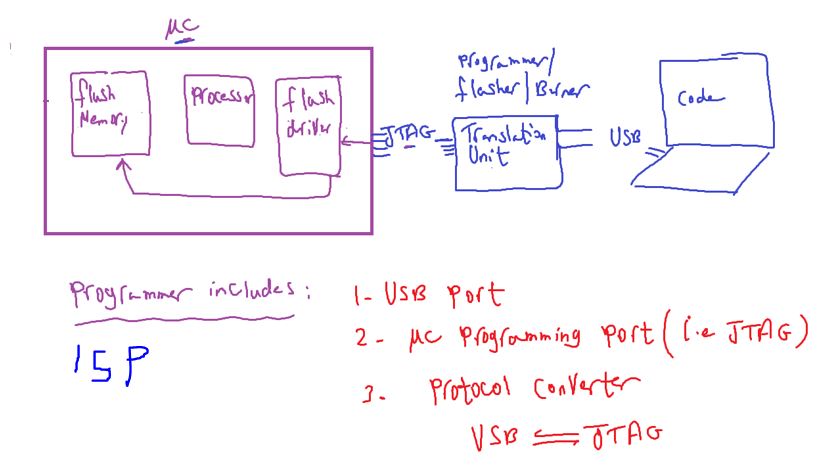 μC
flash
Memory
Processor
flash
driver
JTAG
Programmer/
flasher/Burner
Translation
Unit
USB
Code
Programmer includes:
1- USB port
2- μC programming port (i.e JTAG)
3. Protocol Converter
USB ⇌ JTAG
ISP